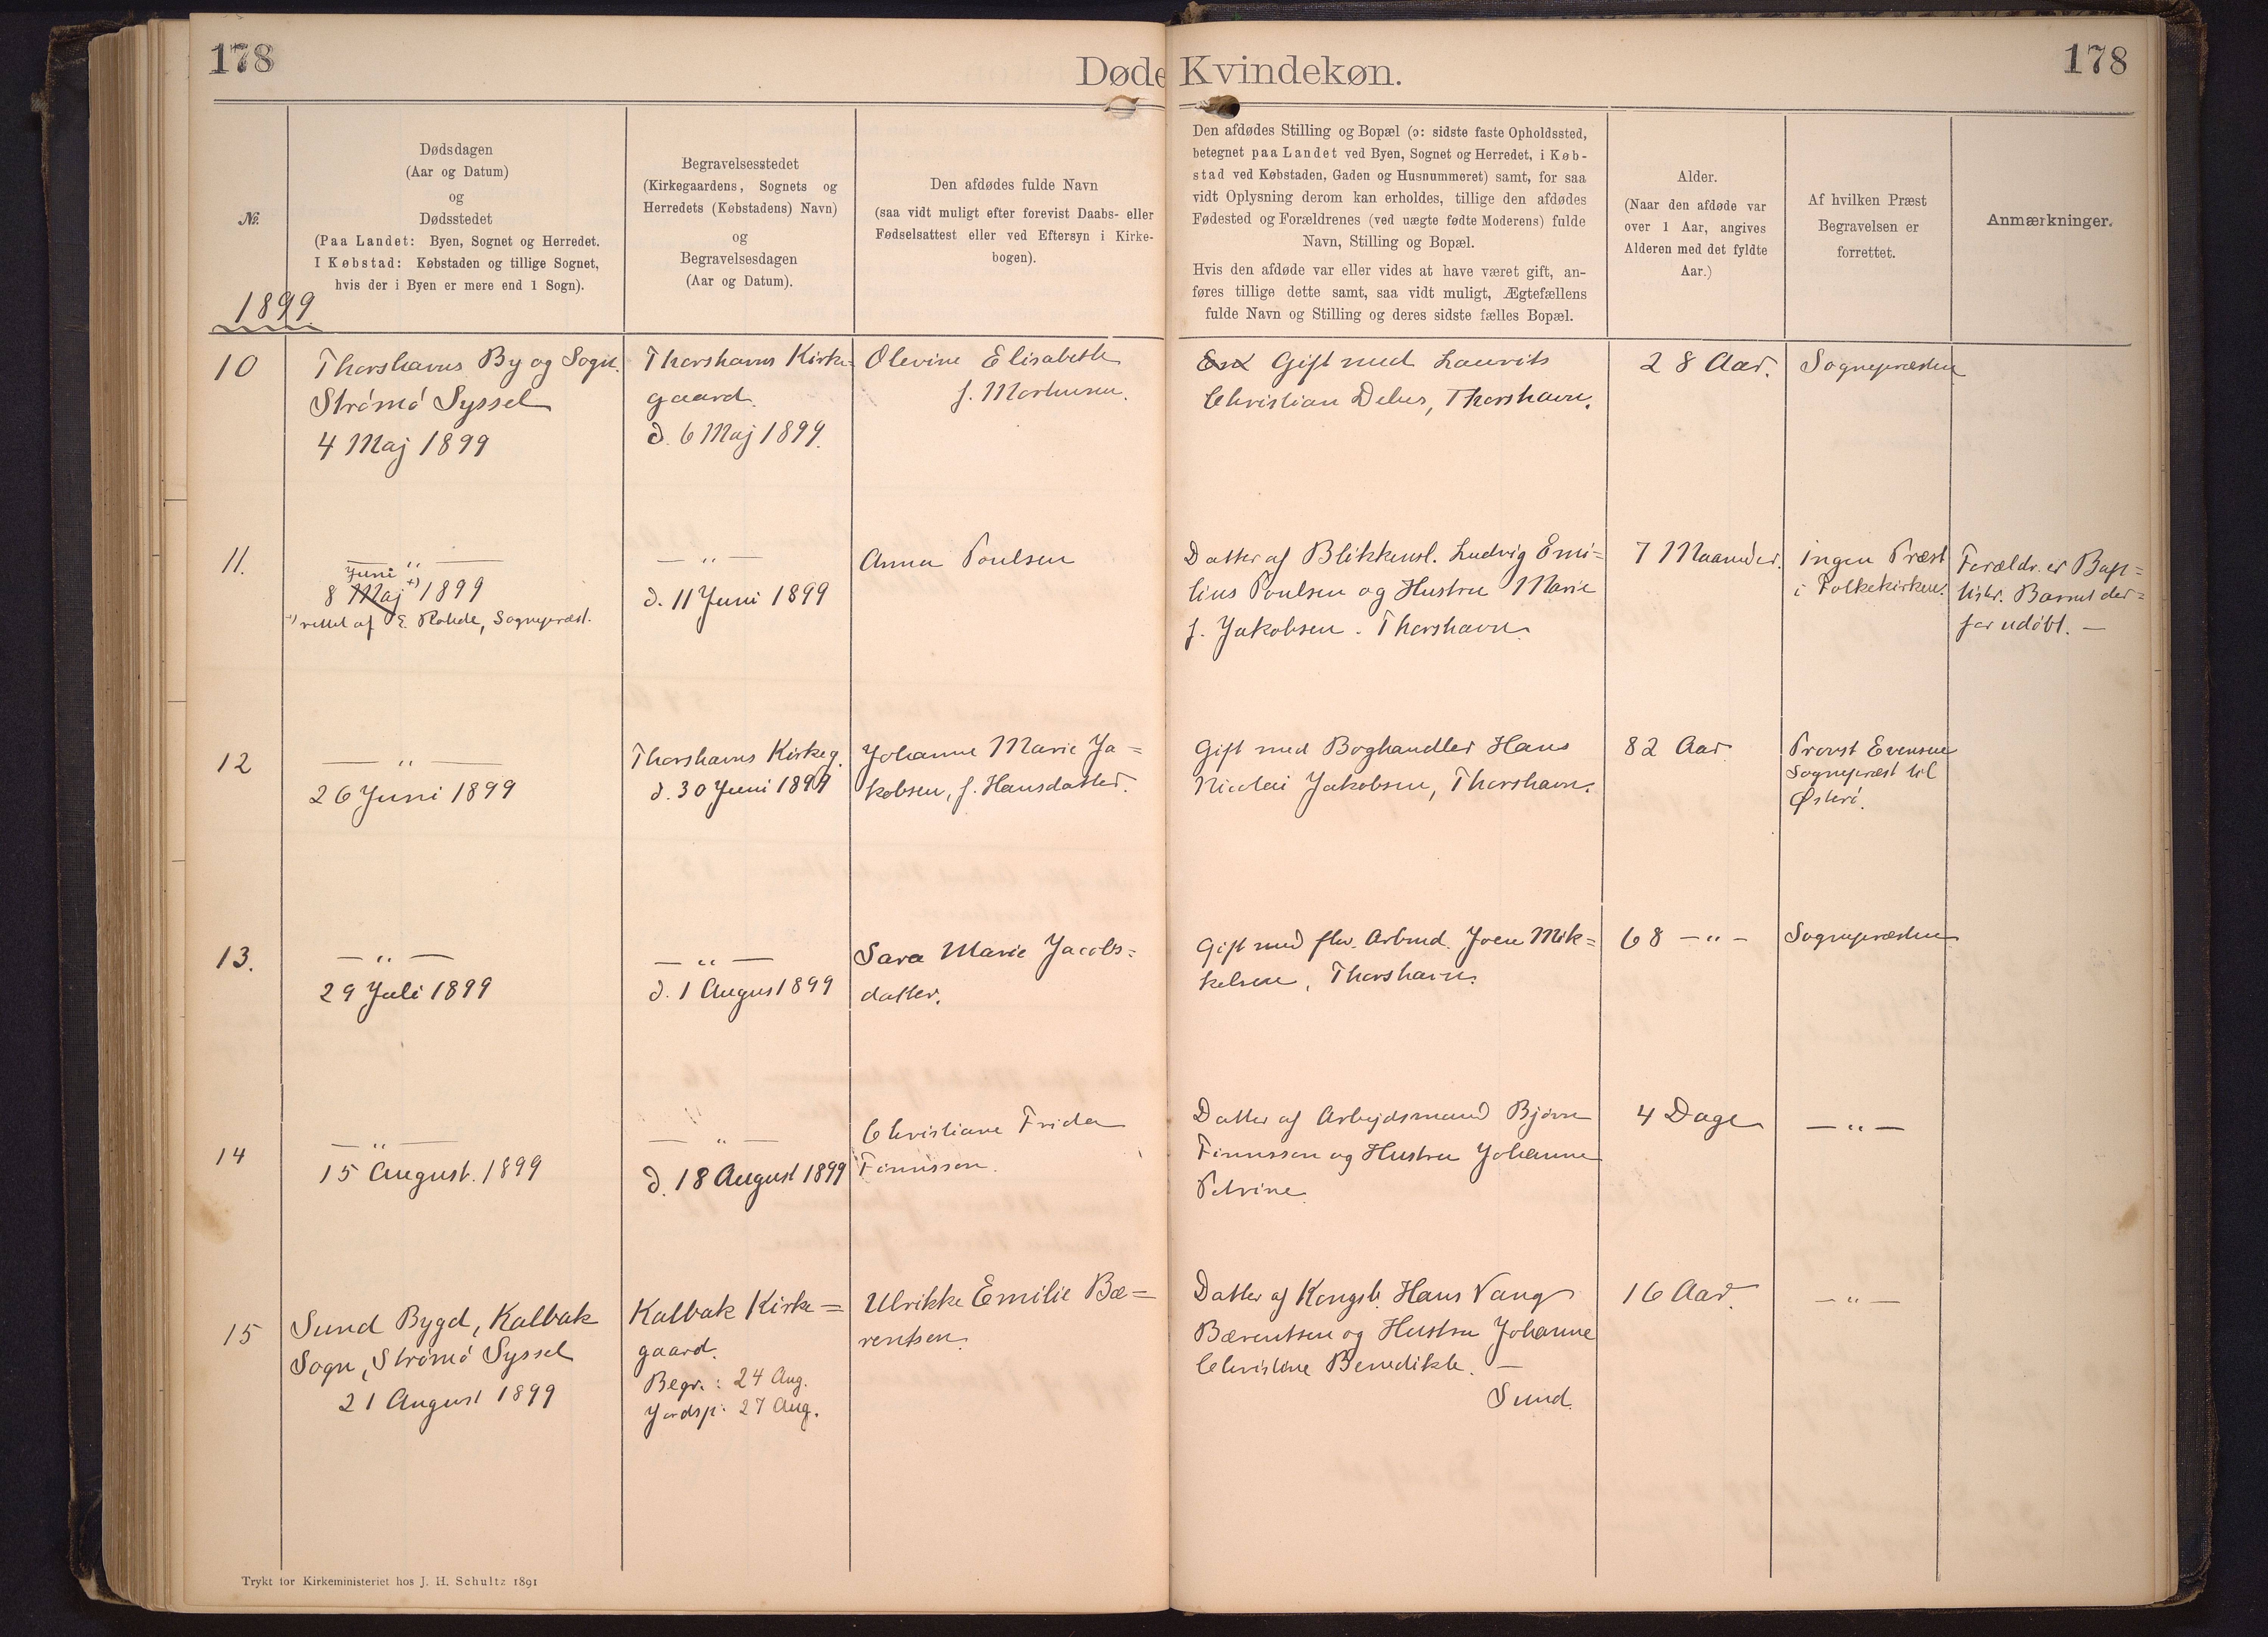 178
Døde Kvindekøn.
178
№.
1899
Dødsdagen
(Aar og Datum)
og
Dødsstedet
(Paa Landet: Byen, Sognet og Herredet.
I Købstad: Købstaden og tillige Sognet,
hvis der i Byen er mere end 1 Sogn).
Begravelsesstedet
(Kirkegaardens, Sognets og
Herredets (Købstadens) Navn)
og
Begravelsesdagen
(Aar og Datum).
Den afdødes fulde Navn
(saa vidt muligt efter forevist Daabs- eller
Fødselsattest eller ved Eftersyn i Kirke-
bogen).
Den afdødes Stilling og Bopæl (ɔ: sidste faste Opholdssted,
betegnet paa Landet ved Byen, Sognet og Herredet, i Køb-
stad ved Købstaden, Gaden og Husnummeret) samt, for saa
vidt Oplysning derom kan erholdes, tillige den afdødes
Fødested og Forældrenes (ved uægte fødte Moderens) fulde
Navn, Stilling og Bopæl.
Hvis den afdøde var eller vides at have været gift, an-
føres tillige dette samt, saa vidt muligt, Ægtefællens
fulde Navn og Stilling og deres sidste fælles Bopæl.
Alder.
(Naar den afdøde var
over 1 Aar, angives
Alderen med det fyldte
Aar.)
Af hvilken Præst
Begravelsen er
forrettet.
Anmærkninger.
10
Thorshavns By og Sogn.
Strømø Syssel
4 Maj 1899
Thorshavns Kirke-
gaard.
d. 6 Maj 1899.
Olevine Elisabeth
f. Morhusen.
Gift med Laurits
Christian Debes, Thorshavn.
28 Aar.
Sognepræsten
11.
— „ —
Juni
8 Maj +) 1899
+) rettet af E. Rohde, Sognepræst.
— „ —
d. 11 Juni 1899
Anna Poulsen
Datter af Blikkensl. Ludvig Emi=
lius Poulsen og Hustru Marie
f. Jakobsen. Thorshavn.
7 Maaneder.
Ingen Præst
i Folkekirken.
Forældr. er Bap=
tister. Barnet der=
for udøbt. —
12
— „ —
26 Juni 1899
Thorshavns Kirkeg.
d. 30 Juni 1899
Johanne Marie Ja=
kobsen, f. Hansdatter.
Gift med Boghandler Hans
Nicolai Jakobsen, Thorshavn.
82 Aar
Provst Evensen
Sognepræst til
Østerø.
13.
— „ —
29 Juli 1899
— „ —
d. 1 Augus 1899
Sara Marie Jacobs=
datter.
Gift med fhv. Arbmd. Joen Mik=
kelsen, Thorshavn.
68 — „ —
Sognepræsten
14
— „ —
15 August. 1899
— „ —
d. 18 August 1899
Christiane Frida
Finnsson.
Datter af Arbejdsmand Bjørn
Finnsson og Hustru Johanne
Petrine
4 Dage
— „ —
15
Sund Bygd, Kalbak
Sogn, Strømø Syssel
21 August 1899
Kalbak Kirke=
gaard.
Begr.: 24 Aug.
Jordsp: 27 Aug.
Ulrikke Emilie Bæ=
rentsen.
Datter af Kongsb. Hans Vang
Bærentsen og Hustru Johanne
Christine Benedikte. —
Sund.
16 Aar.
— „ —
Trykt for Kirkeministeriet hos J. H. Schultz 1891